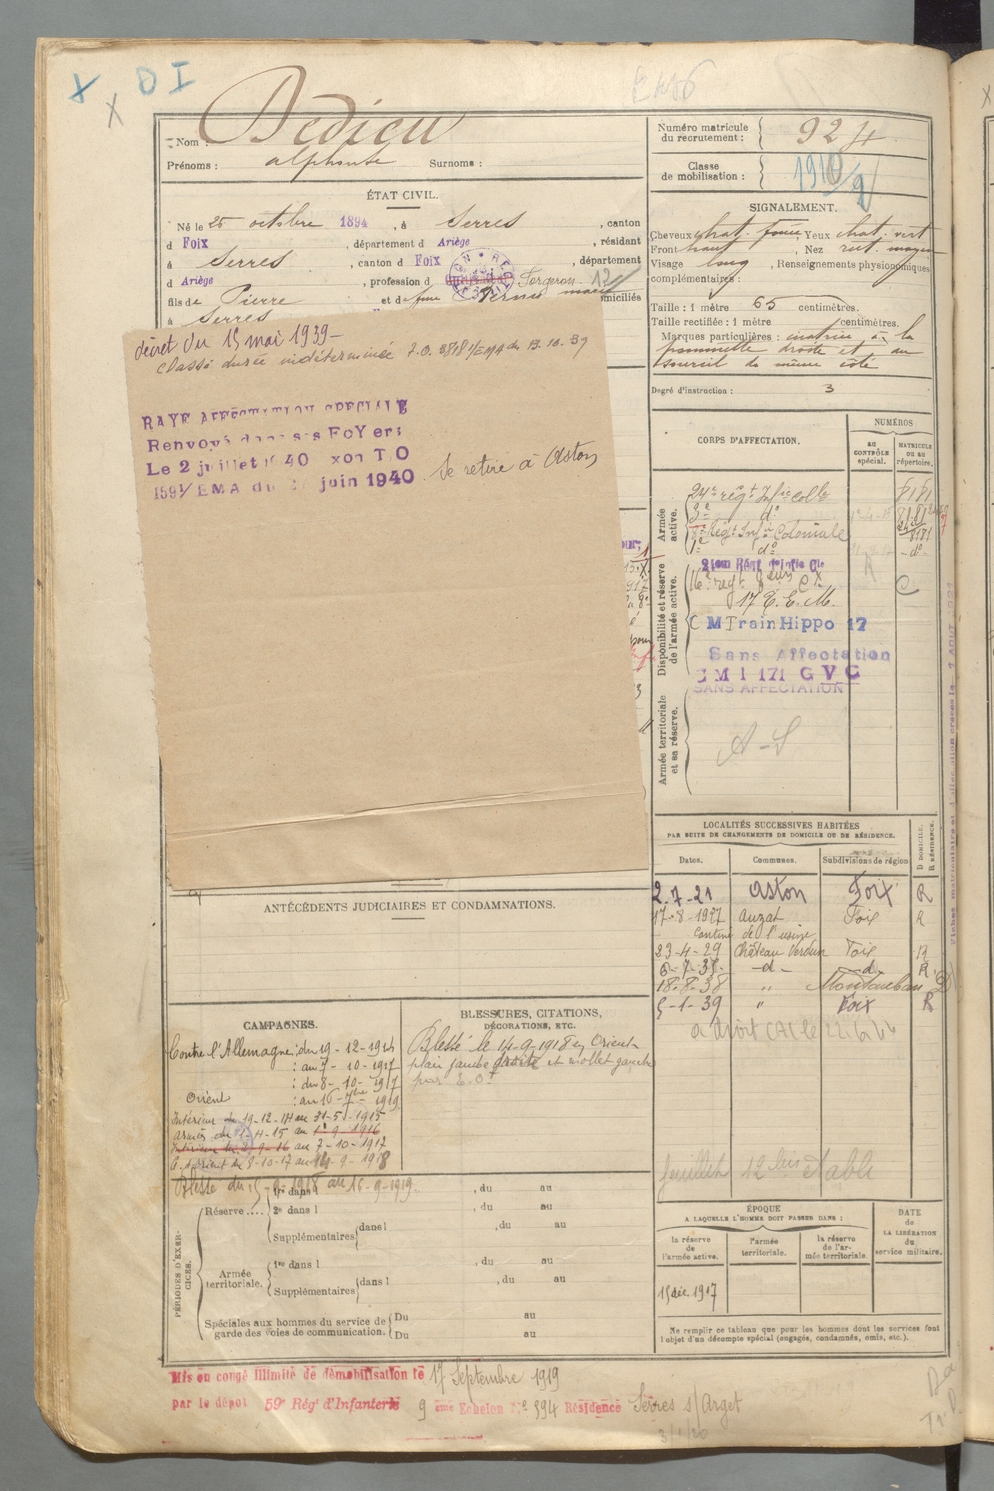 X D I
X
Nom : Dedieu
Prénoms : alphonse Surnoms :
Numéro matricule du recrutement : 924
Classe de mobilisation : 1910
ÉTAT CIVIL.
Né le 25 octobre 1894, à Serres, canton
d Foix, département d Ariège, résidant
à Serres, canton d Foix, département
d Ariège, profession d Forgeron
fils de Pierre et de feue marie domiciliés
à Serres
SIGNALEMENT.
Cheveux chat. foncé, Yeux chat. vert
Front haut, Nez rect. moyen
Visage long, Renseignements physionomiques
complémentaires :
Taille : 1 mètre 65 centimètres.
Taille rectifiée : 1 mètre centimètres.
Marques particulières : cicatrice à la
pommette droite et au
sourcil du même côté
Degré d'instruction : 3
décret du 15 mai 1939 -
classé durée indéterminée
RAYE AFFECTATION SPECIALE
Renvoyé dans ses FoYers
Le 2 juillet 1940
159 / EMA du juin 1940
Se retire à Aston
CORPS D'AFFECTATION.
NUMÉROS
AU CONTRÔLE spécial.
MATRICULE OU AU répertoire.
Armée active.
24e régt Infie colle 8181
3e do
8e Régt Infie Coloniale 8181
1er do - do -
Disponibilité et réserve de l'armée active.
16e régt
17 E. E. M.
C M Train Hippo 17
Sans Affectation
C M I 171 G V C
SANS AFFECTATION
Armée territoriale et sa réserve.
A - S
LOCALITÉS SUCCESSIVES HABITÉES
PAR SUITE DE CHANGEMENTS DE DOMICILE OU DE RÉSIDENCE.
Dates. Communes. Subdivisions de région D DOMICILE. R RÉSIDENCE.
2.7-21 Aston Foix R
17-8-1927 Auzat Foix R
de l'usine
23-4-29 Château Verdun Foix R
6-7-35- -d- -d- R
18.8.38 " Montauban D
5-1-39 " Foix R
ANTÉCÉDENTS JUDICIAIRES ET CONDAMNATIONS.
CAMPAGNES.
Contre l'Allemagne : du 19-12-1914
: au 7-10-1917
: du 8-10-1917
Orient : au 16-7bre-1919
Intérieur du 19-12-14 au 31-5-1915
Armées du -15 au 1-9-1916
Intérieur du 2-9-16 au 7-10-1917
A. d'orient du 8-10-17 au 14-9-1918
Blessé du 15-9-1918 au 16-9-1919.
BLESSURES, CITATIONS, DÉCORATIONS, ETC.
Blessé le 14-9-1918 en Orient
plaie jambe droite et mollet gauche
par E.O.
PÉRIODES D'EXERCICES.
Réserve.... 1re dans l , du au
2e dans l , du au
Supplémentaires dans l , du au
Armée territoriale. 1re dans l , du au
Supplémentaires dans l , du au
Spéciales aux hommes du service de garde des voies de communication. Du au
Du au
ÉPOQUE
A LAQUELLE L'HOMME DOIT PASSER DANS :
DATE de LA LIBÉRATION du service militaire.
la réserve de l'armée active.
l'armée territoriale.
la réserve de l'armée territoriale.
15 déc. 1917
Ne remplir ce tableau que pour les hommes dont les services font
l'objet d'un décompte spécial (engagés, condamnés, omis, etc.).
Mis en congé illimité de démobilisation le 17 Septembre 1919
par le dépôt 59e Régt d'Infanterie 9 ème Echelon No 394 Résidence Serres s/Arget